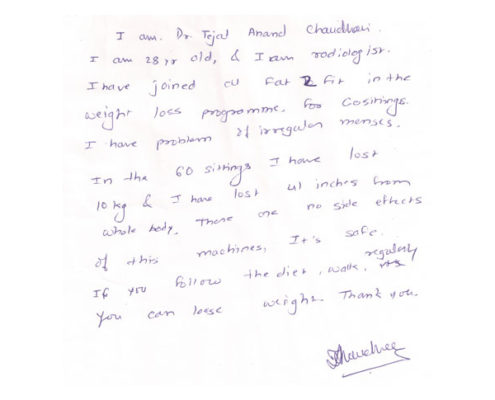 I am. Dr. Tejal Anand Chaudhari.
I am 28 yr old, & I am radiologist.
I have joined cu Fat 2 Fit in the
weight loss programme. for 60 sittings.
I have problem of irregular menses.
In the 60 sittings I have lost
10 kg & I have lost 41 inches from
whole body. There are no side effects
of this machines, It's safe.
If you follow the diet, walk, regularly
You can loose weight. Thank you.